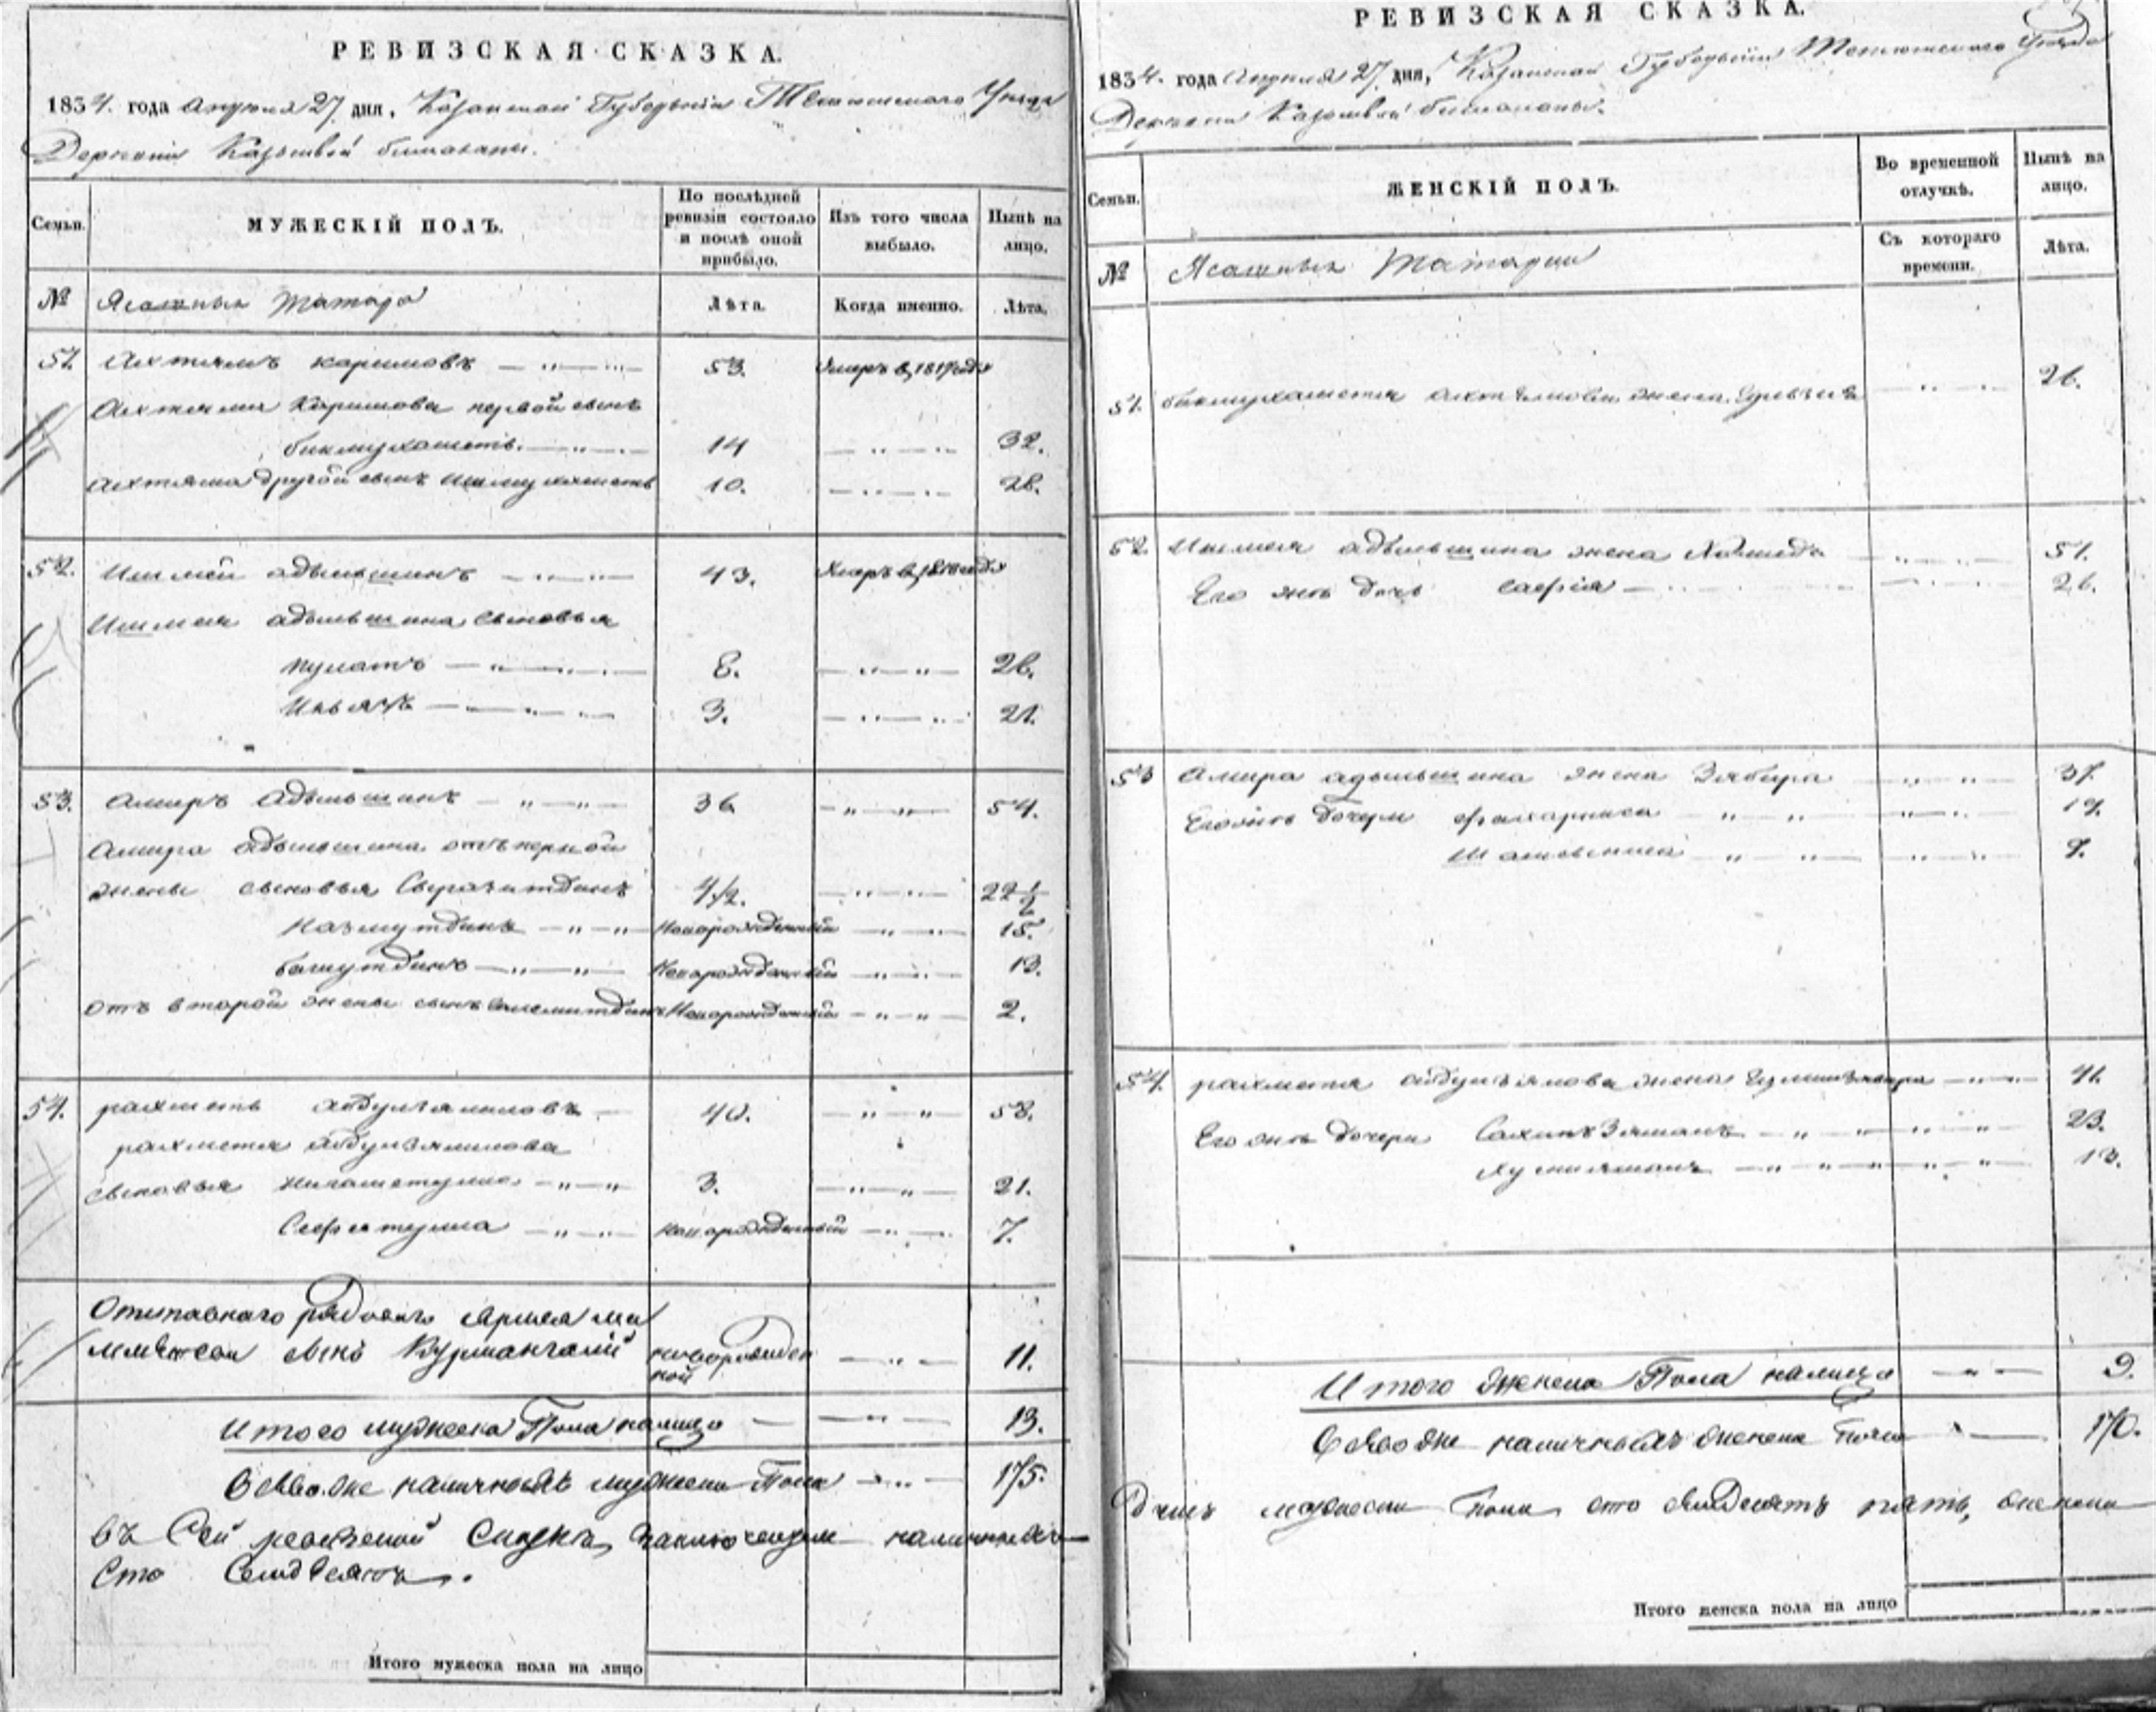 РЕВИЗСКАЯ СКАЗКА.
1834. года Апреля 27 дня, Казанской Губернии Тетюшского Уезда
Деревни
МУЖЕСКІЙ ПОЛЪ.
Семьи.
По послѣдней ревизіи состояло и послѣ оной прибыло.
Изъ того числа выбыло.
Нынѣ на лицо.
№ Ясашныя татара
Лѣта. Когда именно. Лѣта.
51. Ахтямъ каримовъ 53. Умеръ в 1817 году
Ахтяма Каримова первой сынъ
бикмухаметь. 14 32.
Ахтяма другой сынъ Ишмухаметь 10. 28.
52. Ишмей адельшинъ 43. Умеръ в году
Ишмея адельшина сыновья
пулатъ 8. 26.
3. 21.
53. Амиръ Адельшинъ 36 54.
Амира адельшина отъ первой
жены сыновья 4/2. 22 1/2
Назмутдинъ Новорожденный 15.
башутдинъ Новорожденный 13.
отъ второй жены сынъ Новорожденный 2.
54. рахметь абдулзялиловъ 40. 58.
рахметя абдулзялилова
сыновья нигаметулла 3. 21.
Сефятулла новорожденный 7.
Отставнаго рядоваго
сынъ Курмангалий новорожден
ной 11.
Итого мужеска Пола налицо 13.
Всѣво же наличныхъ мужеска Пола 175.
Въ Сей ревизской Сказке, Заключающем наличныхъ
Сто Семдесятъ.
Итого мужеска пола на лицо
РЕВИЗСКАЯ СКАЗКА.
1834. года Апреля 27 дня, Казанской Губернии Тетюшского Уезда
Деревни
Семьи. ЖЕНСКІЙ ПОЛЪ. Во временной отлучкѣ. Нынѣ на лицо.
№ Ясашныя татарки
Съ котораго времени. Лѣта.
51. бикмухаметя ахтямова жена 26.
52. Ишмея адельшина жена Хамида 51.
Его жъ дочь сафія 26.
53 Амира адельшина жена Зябира 37.
Его жъ дочери 17.
9.
54. рахметя абдулзялилова жена 41.
Его жъ дочери Сахипъ Зямалъ 23.
13.
Итого женска Пола налицо 9.
Всѣво же наличныхъ женска пола 170.
Душъ мужеска пола сто семдесятъ пять, женска
Итого женска пола на лицо